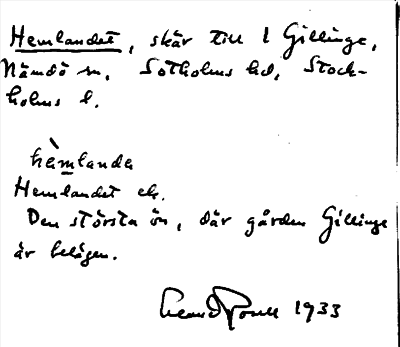 Hemlandet, skär till 1 Gillinge,
Nämdö sn, Sotholms hd, Stock-
holms l.
hèmlanda
Hemlandet ek.
Den största ön, där gården Gillinge
är belägen.
1933